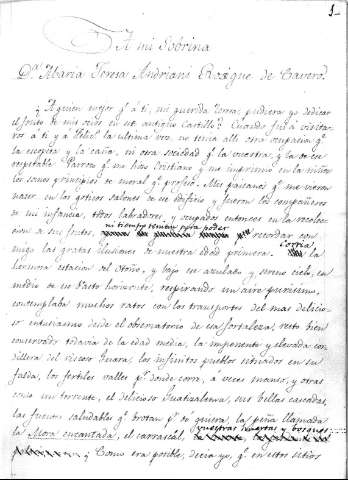 1
A mi Sobrina
Dª Maria Teresa Andriani Rosique de Cavero.
¿A quien mejor q.e á ti, mi querida Teresa, pudiera yo dedicar
el fruto de mis ocios en este antiguo Castillo? Cuando fui á visitar
ros á ti y á Felix la ultima vez, no tenia alli otra ocupacion q.e
la escopeta y la caña, ni otra sociedad q.e la vuestra, y la de ese
respetable Parroco q.e me hizo Cristiano y me imprimió en la niñez
los sanos principios de moral q.e profeso. Mis paisanos q.e me vieron
nacer en los goticos salones de ese edificio y fueron los compañeros
de mi infancia, todos labradores, y ocupados entonces en la recolec-
cion de sus frutos, ni tiempo tenian para poder recordar con-
migo las gratas ilusiones de nuestra edad primera. Corria la
hermosa estacion del otoño, y bajo ese azulado y sereno cielo, en
medio de ese vasto horizonte, respirando un aire purisimo,
contemplaba muchos ratos con los transportes del mas delicio-
so entusiasmo desde el observatorio de esa fortaleza, resto bien
conservado todavia de la edad media, la imponente y elevada cor-
dillera del riscoso Guara, los infinitos pueblos situados en su
falda, los fertiles valles p.r donde corre, á veces manso, y otras
como un torrente, el delicioso Guatizalema, sus bellas cascadas,
las fuentes saludables q.e brotan p.r do quiera, la peña llamada
la Mora encantada, el carrascal, vuestras huertas y bosques
¿Como era posible, decia yo, q.e en estos sitios